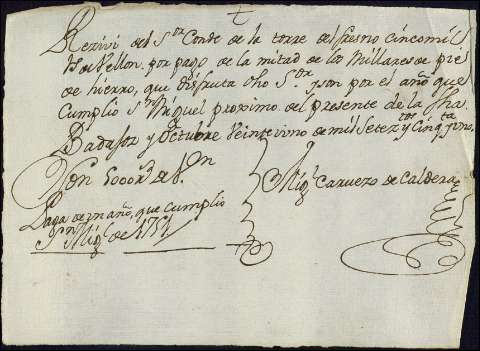 Rezivi del Sor Conde de la torre del fresno cinco mil
Rs de Vellon, por pago de la mitad de los Millares de pie
de hierro, que disfruta dho Sor, y son por el año que
cumplio Sn Miguel proximo del presente de la fha
Badajoz y Octubre Veinte i uno de mil Setezos y Cinqta y uno,
Son 5000 rs de Vn
Migl Caruezo de Caldera
Paga de un año, que cumplio
Sn Migl de 1751